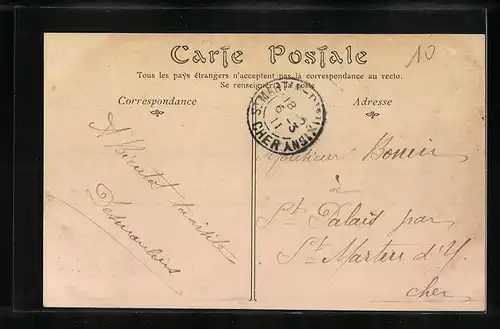 Carte Postale
10
Tous les pays étrangers n'acceptent pas la correspondance au recto.
Se renseigner à la poste
Correspondance
Adresse
St MARTIN-D'AUXIGNY
18 -3
6
11
CHER
A Bientot ta visite
Desmoulins
Monsieur Bonin
à
St Palais par
St Martin d'A.
Cher